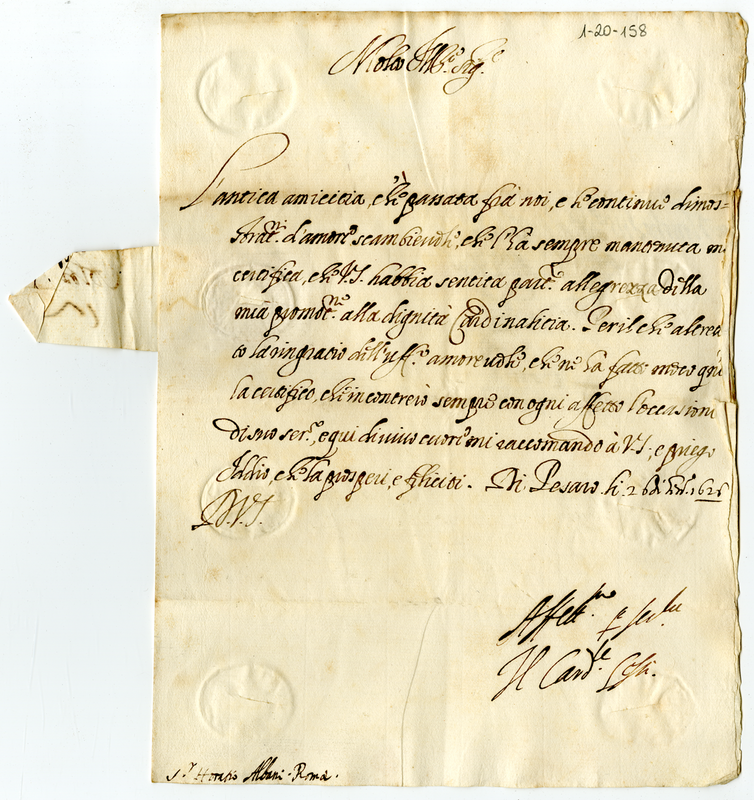 1-20-158
Molto Ill.e Sig.e
L'antica amicitia, ch'è passata frà noi, e le continue dimos=
trat.ni d'amore scambieuole, che l'ha sempre mantenuta mi
certifica, che V.S. habbia sentita part.e allegrezza della
mia promot.ne alla dignità Cardinalitia. Per il che altret
to la ringratio dell'uff.o amoreuole, che ne hà fatto meco qui
la certifico, che incontrerò sempre con ogni affetto l'occasioni
di suo ser.o, e qui di viuo cuore mi raccomando à V.S., e priego
Iddio, che la prosperi, e feliciti. Di Pesaro li 26 1626
D.V.S.
Affett.mo
Il Card.le
S.r Horatio Albani. Roma.